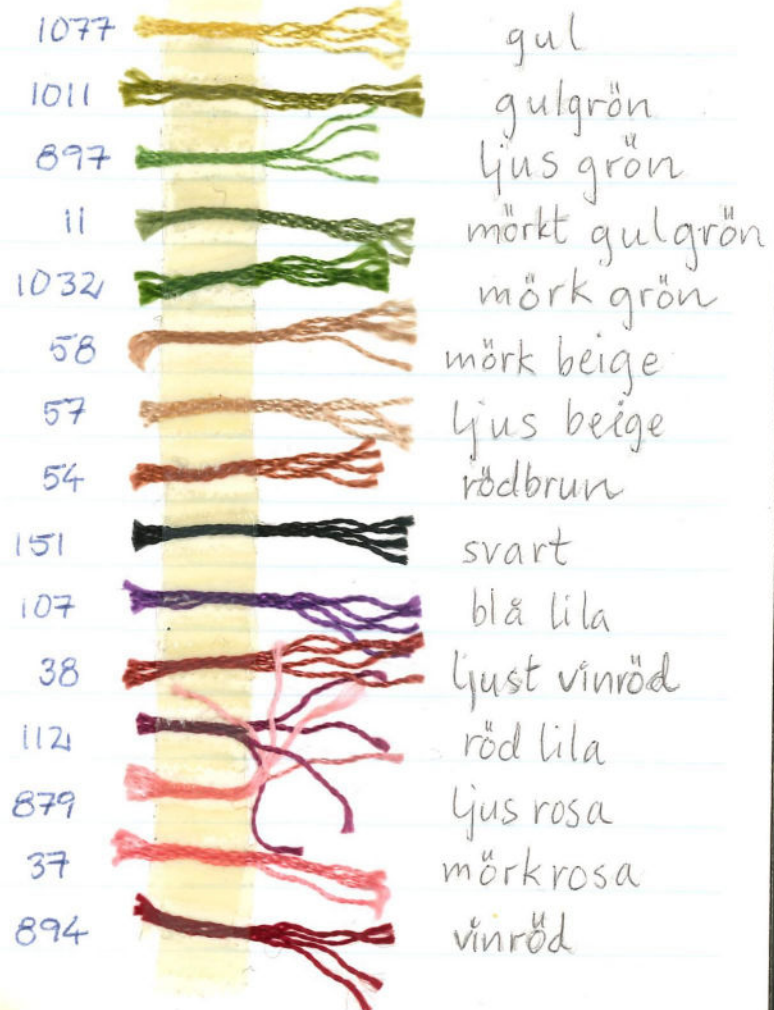 1077 gul
1011 gulgrön
897 ljus grön
11 mörkt gulgrön
1032 mörk grön
58 mörk beige
57 ljus beige
54 rödbrun
151 svart
107 blå lila
38 ljust vinröd
112 röd lila
879 ljus rosa
37 mörkrosa
894 vinröd